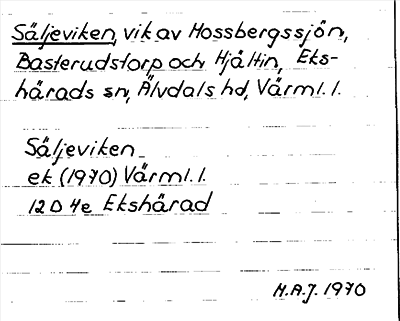 Säljeviken, vik av Mossbergssjön,
Basterudstorp och Hjåltin, Eks-
härads sn, Älvdals hd, Värml. l.
Säljeviken
ek (1970) Värml. l.
12 D 4e Ekshärad
H.A.J. 1970